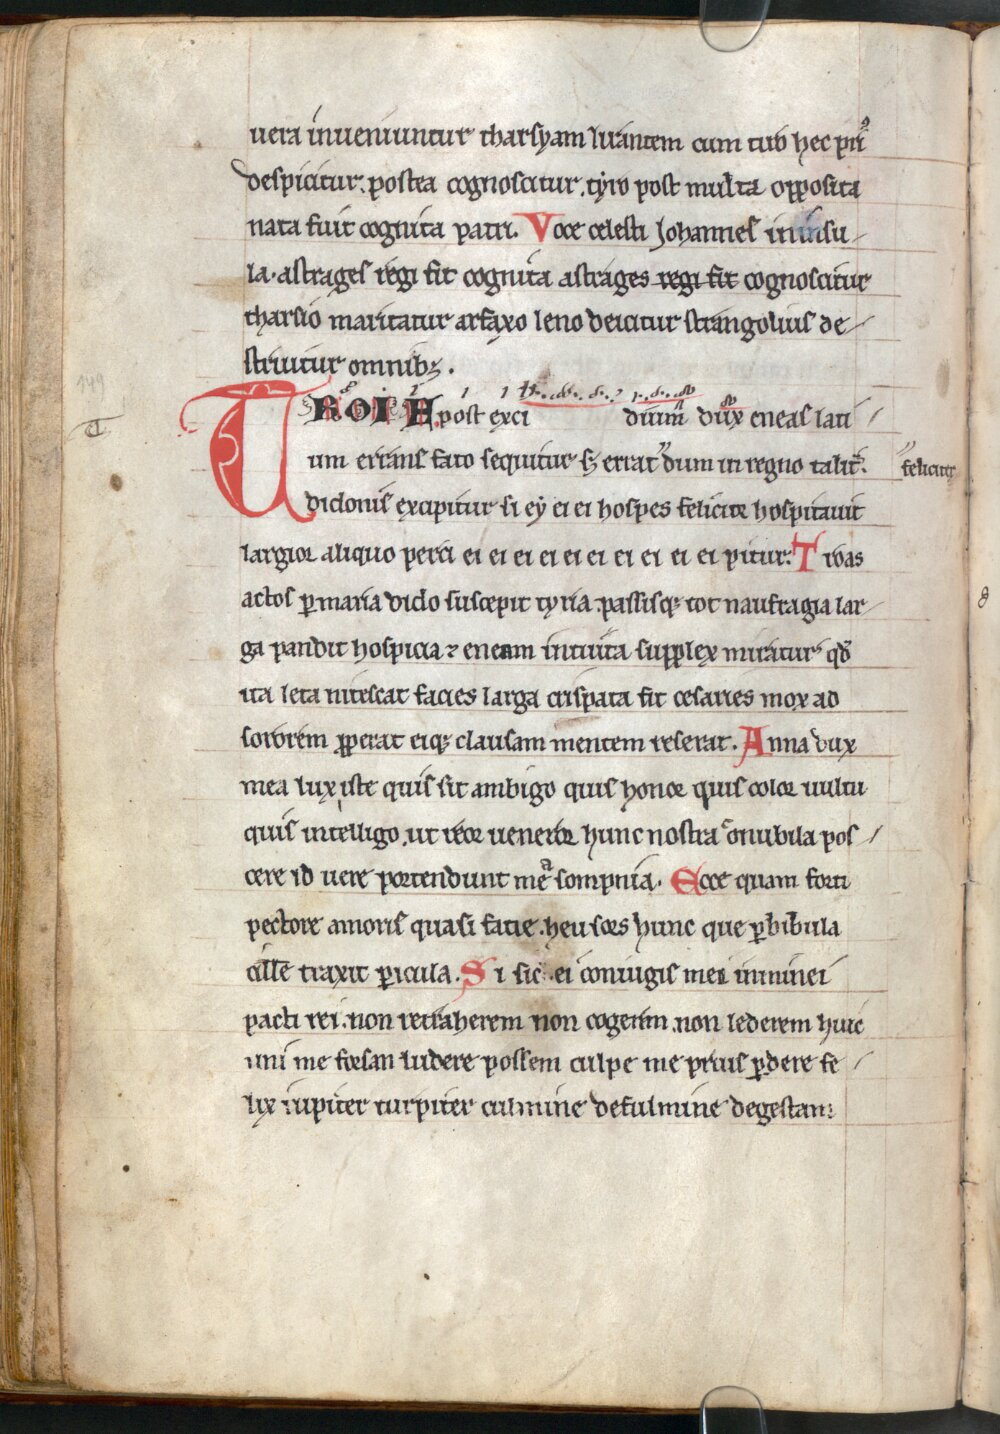 uera inueniuntur tharsyam luuantem cum tub hec pri
despicitur. postea cognoscitur. tyro post multa opposita
nata fuit cognita patri. Voce celesti Johannes in insu
la. astrages regi fit cognita astrages regi fit cognoscitur
tharsio maritatur arfaxo leno deicitur strangolius de
struitur omnibꝫ.
TROIE post exci dium dux eneas lati
um errans fato sequitur sꝫ errat dum in regno talit.
feliciter
didonis excipitur si ey ei ei hospes felicior hospitauit
largior aliquo perci ei ei ei ei ei ei ei ei ei ei pitur: Troas
actos ꝑ maria dido suscepit tyria. passisqꝫ tot naufragia lar
ga pandit hospicia ⁊ eneam intuita supplex miratur qđ
ita leta nitescat facies larga crispata fit cesaries mox ad
sororem ꝓperat eiqꝫ clausam mentem reserat. Anna dux
mea lux iste quis sit ambigo quis honor quis color uultu
quis intelligo. ut reor uereor hunc nostra ꝯnubila pos
cere id uere portendunt mea sompnia. Ecce quam forti
pectore amoris quasi facie. heu soes hunc que ꝑbibula
cille traxit ꝑicula. Si sic ei coniugis mei inminei
pacti rei. non retraherem non cogerem. non lederem huic
uni me forsan ludere possem culpe me prius ꝑdere fe
lix iupiter turpiter culmine de fulmine degestam